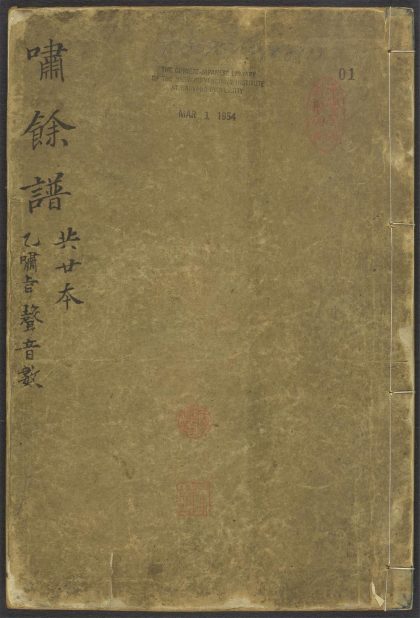 嘯餘譜
共廿本
乙嘯旨聲音數
THE CHINESE-JAPANESE LIBRARY
OF THE HARVARD-YENCHING INSTITUTE
AT HARVARD UNIVERSITY
MAR 1 1954
01